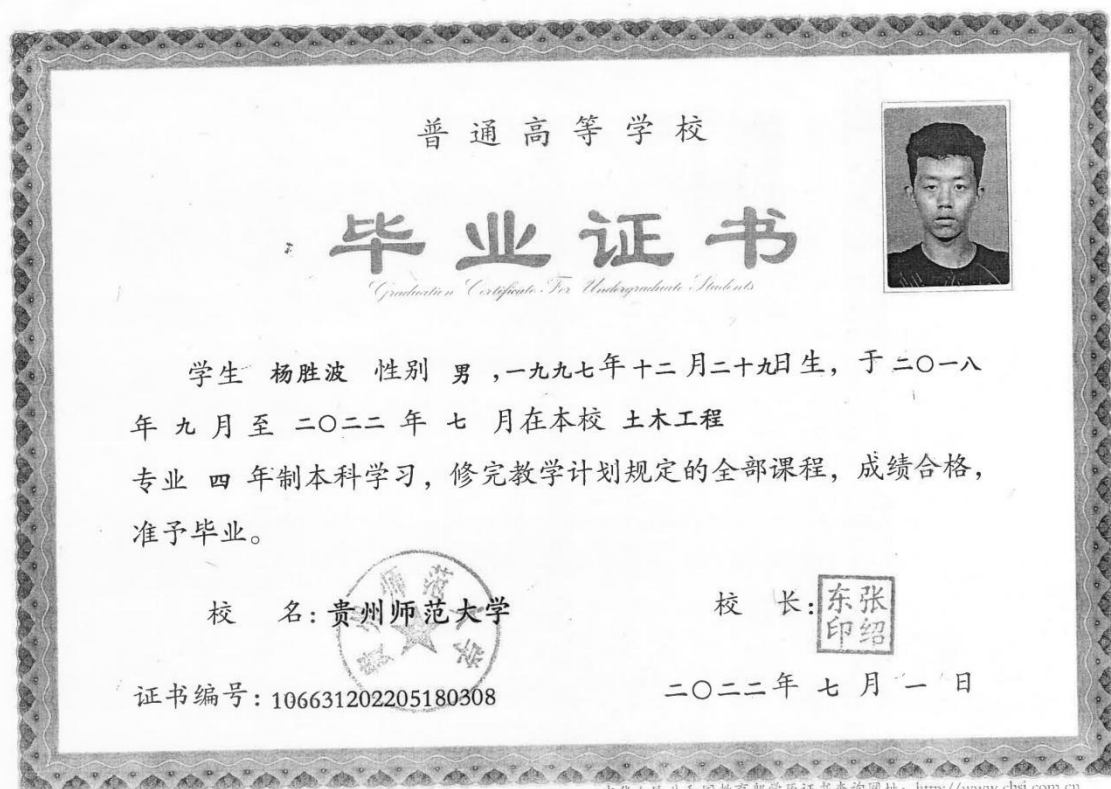 普通高等学校
毕业证书
Graduation Certificate For Undergraduate Students
学生 杨胜波 性别 男 ,一九九七年十二月二十九日生，于二〇一八
年九月至二〇二二年七月在本校 土木工程
专业 四 年制本科学习，修完教学计划规定的全部课程，成绩合格，
准予毕业。
校 名：贵州师范大学
贵州师范大学
校 长：
张绍东印
证书编号：106631202205180308
二〇二二年七月一日
中华人民共和国教育部学历证书查询网址：http://www.chsi.com.cn